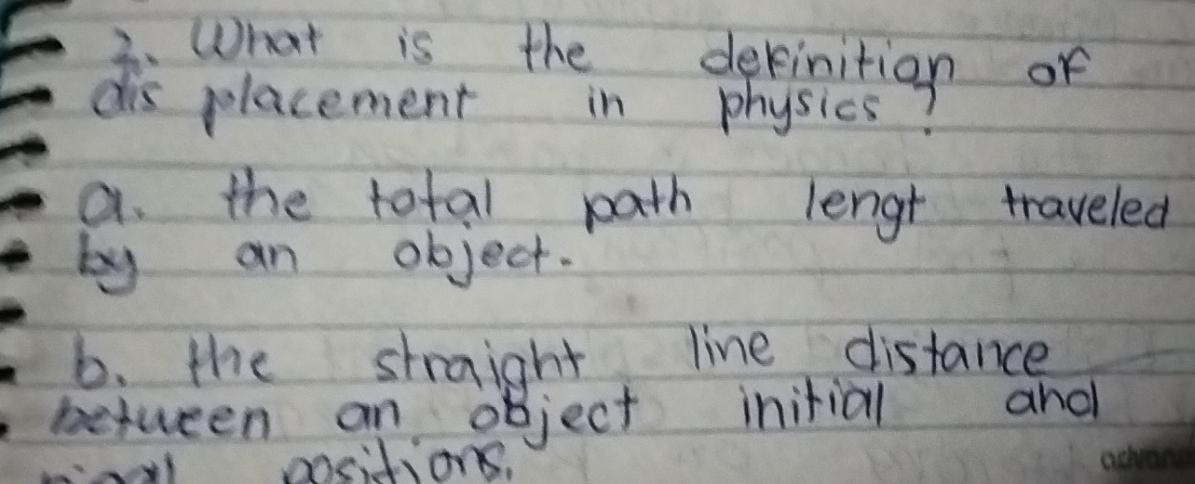 2. What is the definition of
displacement in physics?
a. the total path lengt traveled
by an object.
b. the straight line distance
between an object initial and
positions.